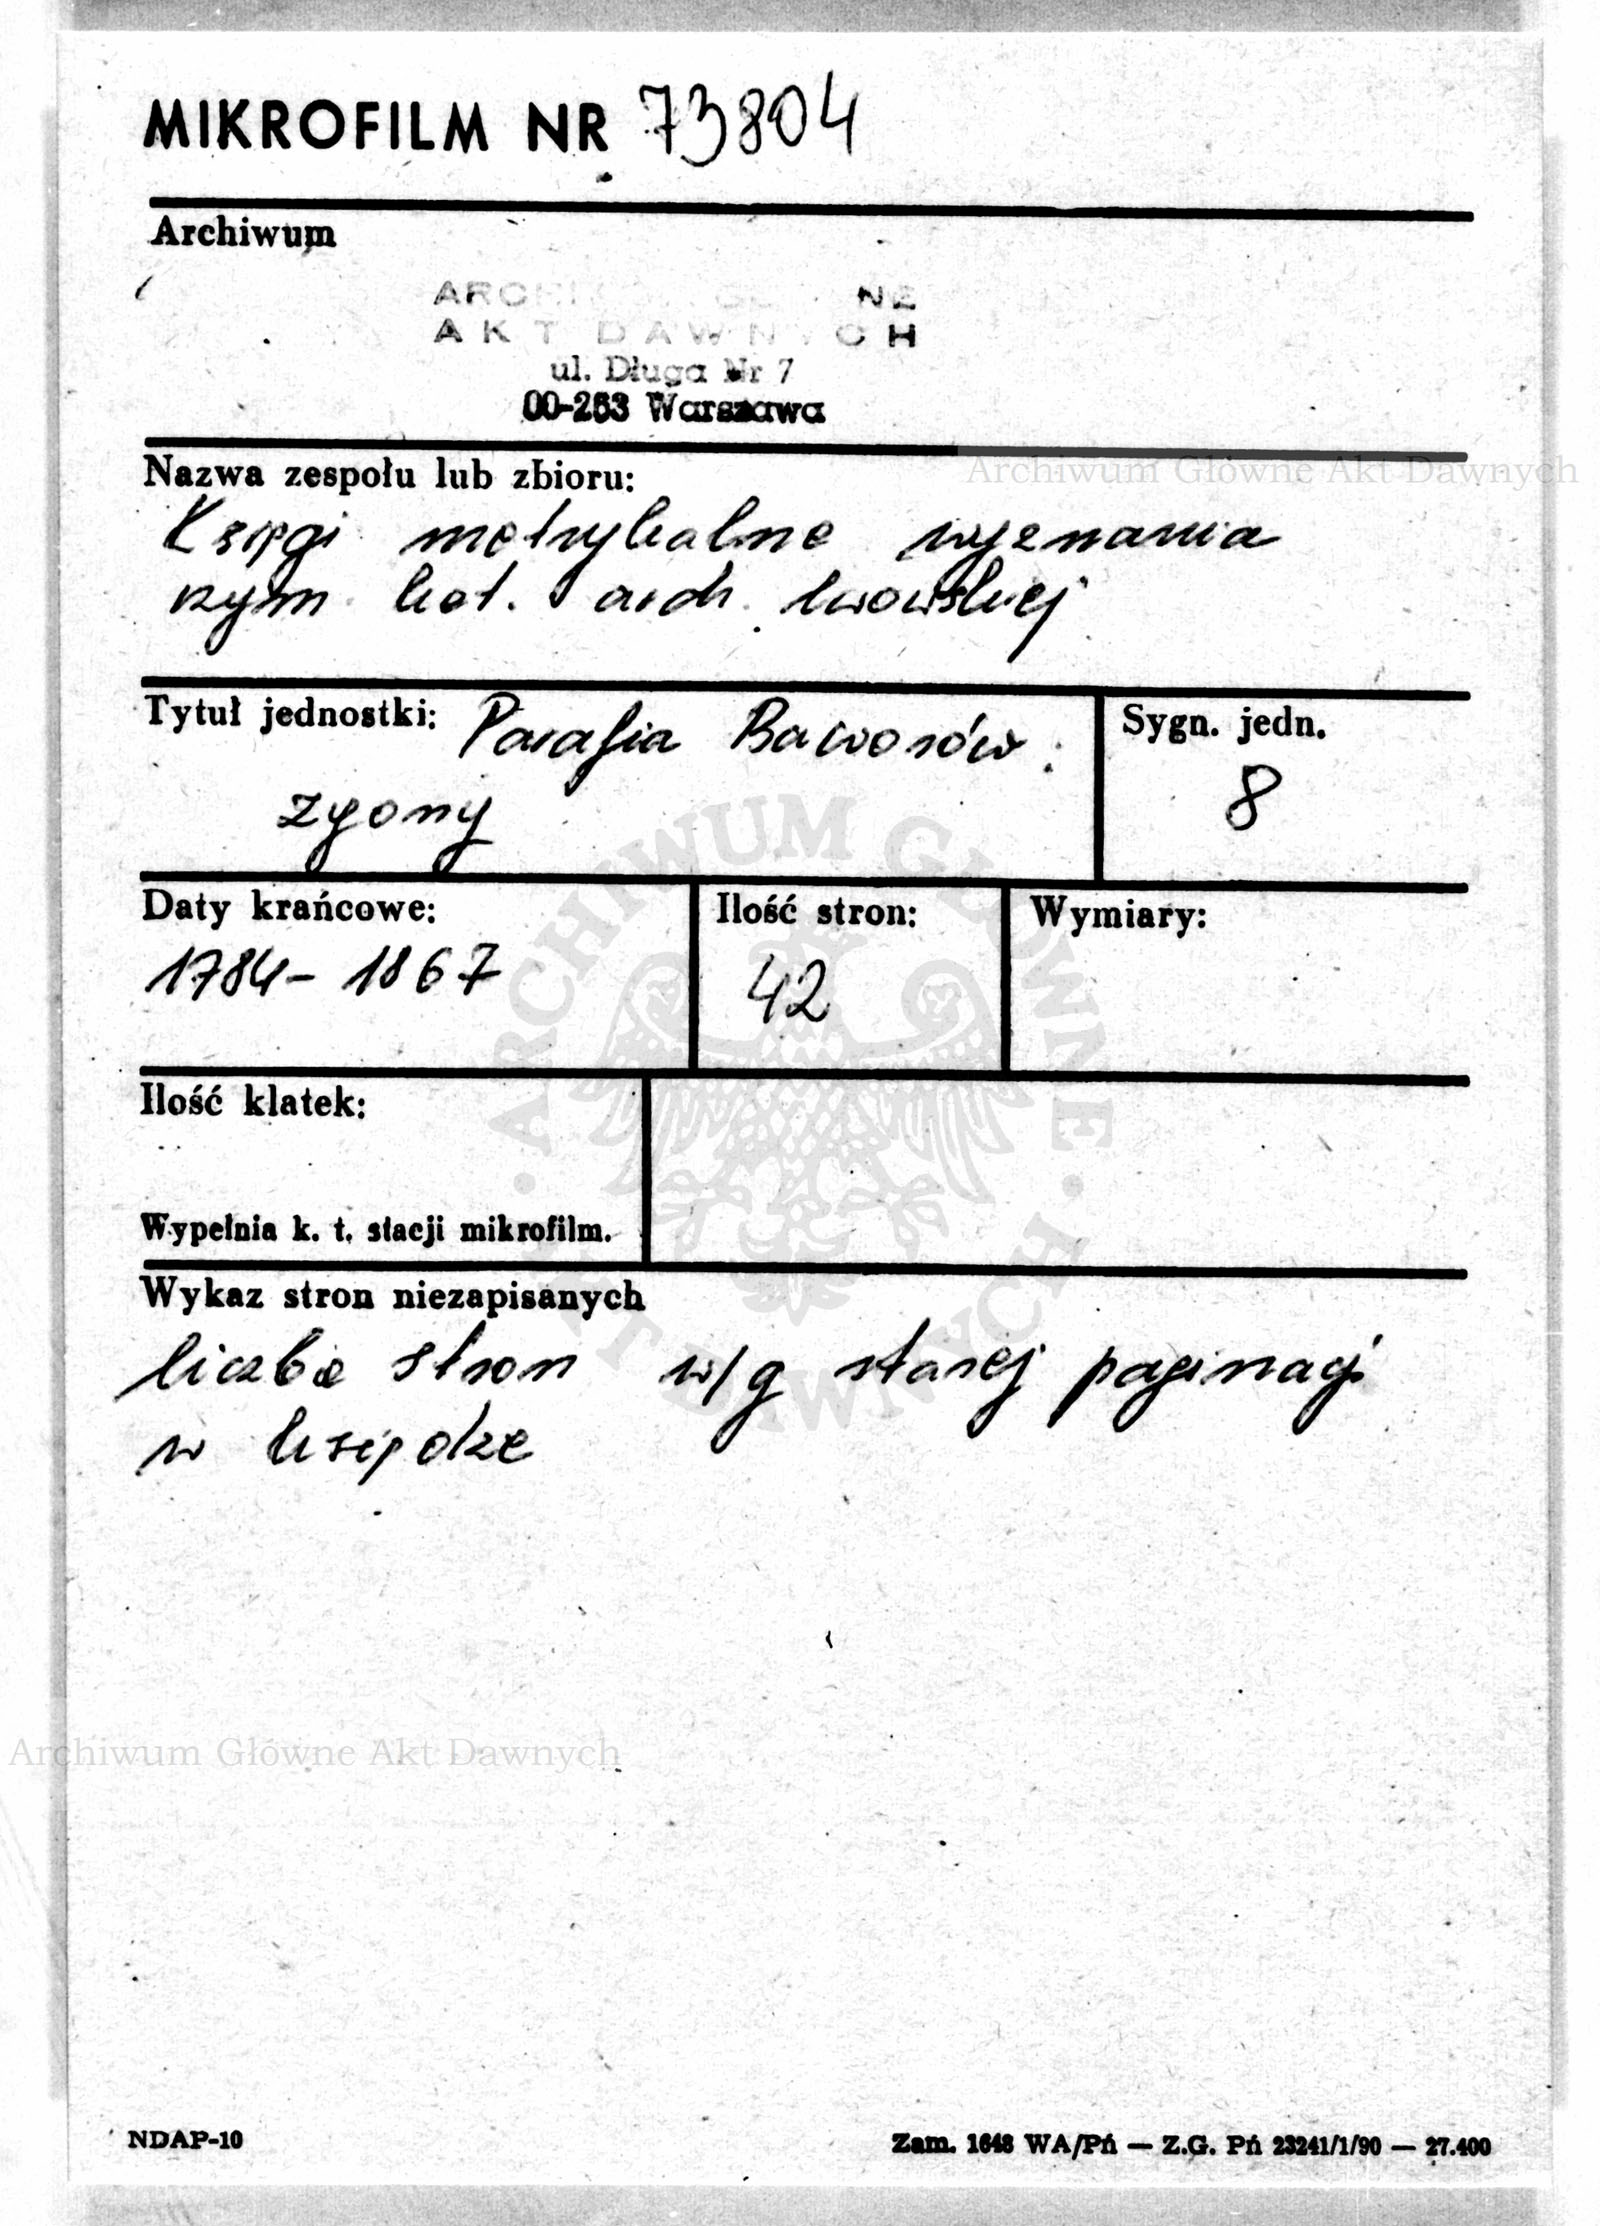 MIKROFILM NR 73804
Archiwum
ARCHIWUM GŁÓWNE
AKT DAWNYCH
ul. Długa Nr 7
00-263 Warszawa
Nazwa zespołu lub zbioru:
Archiwum Główne Akt Dawnych
Księgi metrykalne wyznania
rzym. kat. arch. lwowskiej
Tytuł jednostki: Parafia Baworów.
zgony
Sygn. jedn.
8
Daty krańcowe:
1784-1867
Ilość stron:
42
Wymiary:
Ilość klatek:
Wypełnia k. t. stacji mikrofilm.
ARCHIWUM GŁÓWNE AKT DAWNYCH
Wykaz stron niezapisanych
liczba stron w/g starej paginacji
w książce
Archiwum Główne Akt Dawnych
NDAP-10
Zam. 1648 WA/Pń — Z.G. Pń 23241/1/90 — 27.400